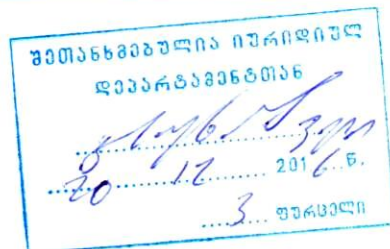 შეთანხმებულია იურიდიულ
დეპარტამენტთან
20 12 2016 წ.
3 ფურცელი